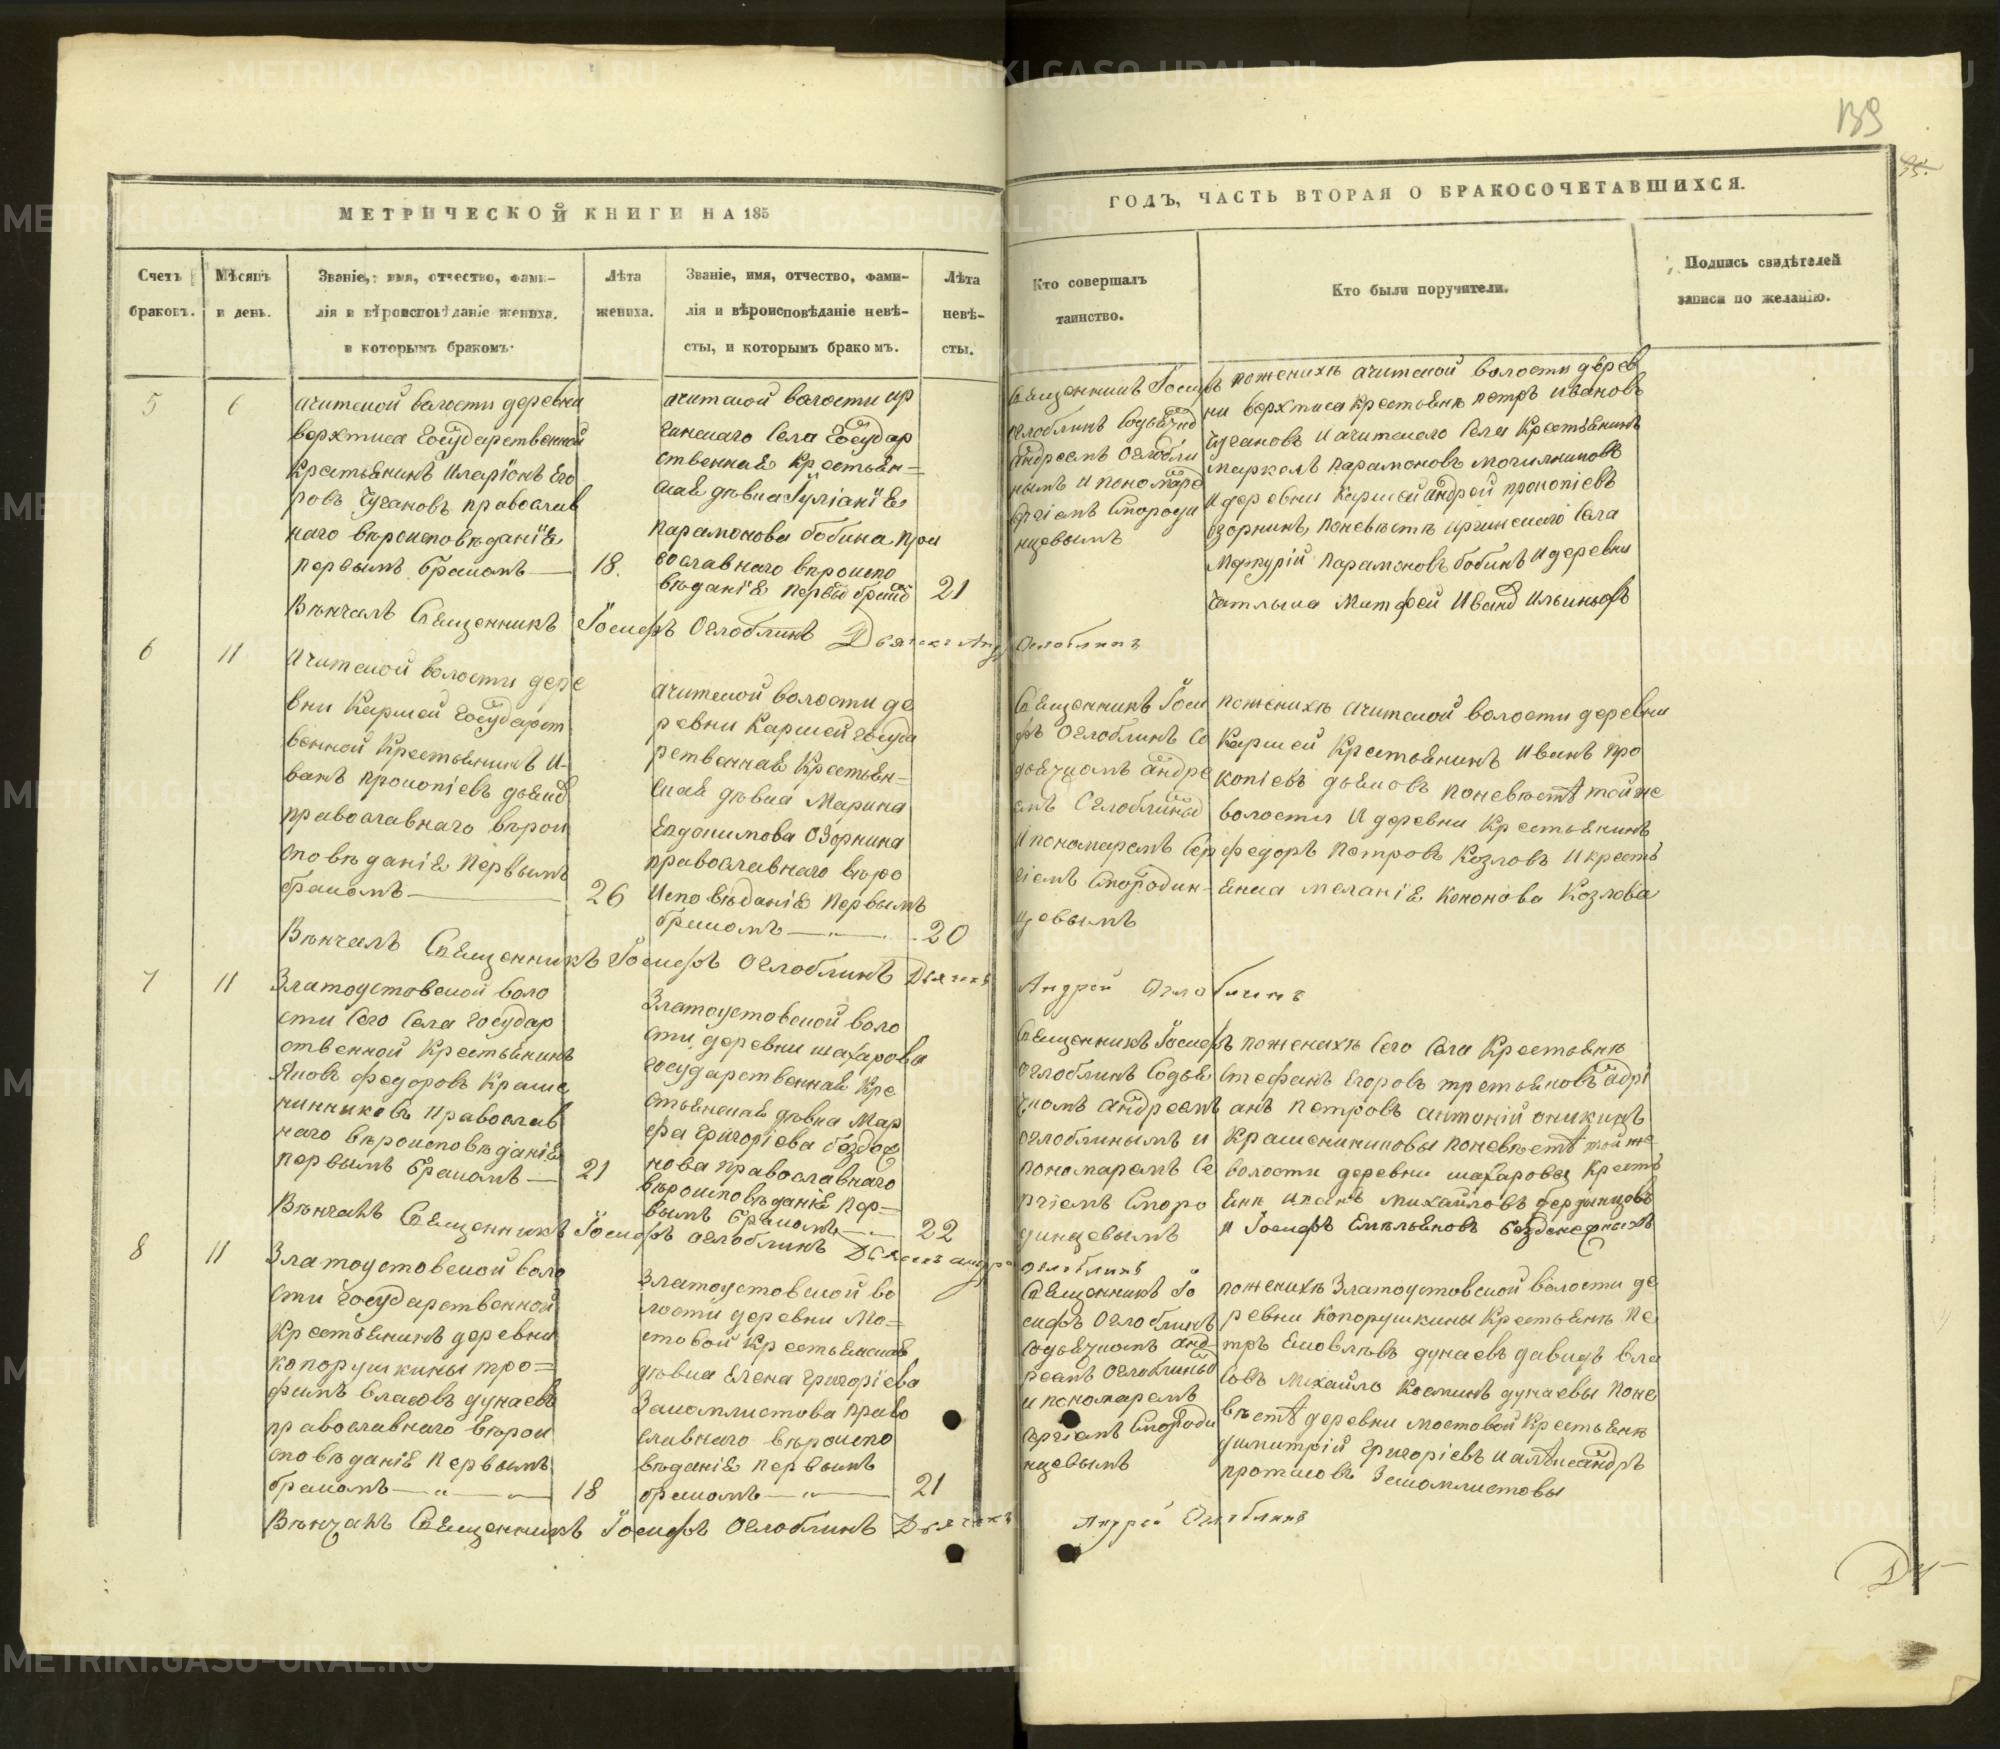 139
95.
МЕТРИЧЕСКОЙ КНИГИ НА 185
ГОДЪ, ЧАСТЬ ВТОРАЯ О БРАКОСОЧЕТАВШИХСЯ.
Счетъ
браковъ.
Мѣсяцъ
и день.
Званіе, имя, отчество, фами-
лія и вѣроисповѣданіе жениха.
и которымъ бракомъ.
Лѣта
жениха.
Званіе, имя, отчество, фами-
лія и вѣроисповѣданіе невѣ-
сты, и которымъ бракомъ.
Лѣта
невѣ-
сты.
Кто совершалъ
таинство.
Кто были поручители.
Подпись свидѣтелей
записи по желанію.
5
6
ачитской волости деревни
верхтиса Государственной
Крестьянинъ Иларіонъ Его
ровъ Чугановъ православ
наго вѣроисповѣданія
первымъ бракомъ
18.
ачитской волости ир
гинскаго Села Государ
ственная Крестьян=
ская дѣвка Іуліанія
Парамонова бобина, прав
вославнаго вѣроиспо
вѣданія первы бракo
21
Священникъ Іосифъ
оглоблинъ Содьяч
андреемъ Оглобли
нымъ и пономаре
Сергіемъ Смороди
нцевымъ
пожениха ачитской волости дерев
ни верхтиса Крестьянъ петръ ивановъ
Чугановъ и ачитскаго Села Крестьянинъ
маркелъ парамоновъ могильниковъ
и деревни Каршей андрей прокопіевъ
озорнинъ, поневѣстѣ иргинскаго Села
Меркурій парамоновъ бобинъ и деревни
Чатлыка Матфей Иванъ Ильины
Вѣнчалъ Священникъ Іосифъ Оглоблинъ Дьячекъ Андр Оглоблинъ
6
11
Ачитской волости дере
вни Каршей Государст
венной Крестьянинъ И-
ванъ прокопіевъ дьяко
православнаго вѣрои
сповѣданія первымъ
бракомъ
26
ачитской волости де
ревни Каршей Госуда
рственная Крестьян=
ская дѣвка Марина
Евдокимова Озорнина
православнаго вѣро
Исповѣданія первымъ
бракомъ
20
Священникъ Іоси
фъ Оглоблинъ Со
дьячкомъ андре
емъ Оглоблины
и пономаремъ Сер
гіемъ Смородин-
цевымъ
пожениха ачитской волости деревни
Каршей Крестьянинъ Иванъ про
копіевъ дьяковъ поневѣстѣ тойже
волости и деревни Крестьянинъ
федоръ петровъ Козловъ и кресть
янка меланія Кононова Козлова
Вѣнчалъ Священникъ Іосифъ Оглоблинъ Дьячекъ Андрей Оглоблинъ
7
11
Златоустовской воло
сти Сего Села Государ
ственной Крестьянинъ
Яковъ федоровъ Краше
нинниковъ Православ
наго вѣроисповѣданія
первымъ бракомъ
21
Златоустовской воло
сти деревни шахарова
государственная Кре
стьянская дѣвка Мар
фа Григоріева бездене
нова православнаго
вѣроисповѣданія пер=
вымъ бракомъ
22
Священникъ Іосифъ
оглоблинъ Содья
чкомъ андреемъ
оглоблинымъ и
пономаремъ Се
ргіемъ Сморо
динцевымъ
пожениха Сего Села Крестьянъ
Стефанъ Егоровъ третьяковъ адрі
анъ петровъ антоній оникинъ
Крашенинниковы поневѣстѣ тойже
волости деревни шахаровы Кресть
янъ Михайловъ
и Іосифъ Емельяновъ безденежныхъ
Вѣнчалъ Священникъ Іосифъ оглоблинъ Дьячекъ андр оглоблинъ
8
11
Златоустовской воло
сти Государственной
Крестьянинъ деревни
копорушкины тро=
фимъ власовъ дунаевъ
православнаго вѣрои
сповѣданія первымъ
бракомъ
18
Златоустовской во
лости деревни Мо=
стовой Крестьянская
дѣвка Елена Григоріева
Закомлистова право
славнаго вѣроиспо
вѣданія первымъ
бракомъ
21
Священникъ Іо
сифъ Оглоблинъ
Содьячкомъ анд
реемъ Оглоблины
и пономаремъ
Сергіемъ Смороди
нцевымъ
пожениха Златоустовской волости де
ревни Копорушкины Крестьянъ Пе
тръ Яковлевъ дунаевъ давидъ вла
совъ Михайло Козминъ дунаевы поне
вѣстѣ деревни мостовой Крестьянъ
димитрій Григоріевъ и александръ
протасовъ Закомлистовы
Вѣнчалъ Священникъ Іосифъ Оглоблинъ Дьячекъ Андрей Оглоблинъ
METRIKI.GASO-URAL.RU